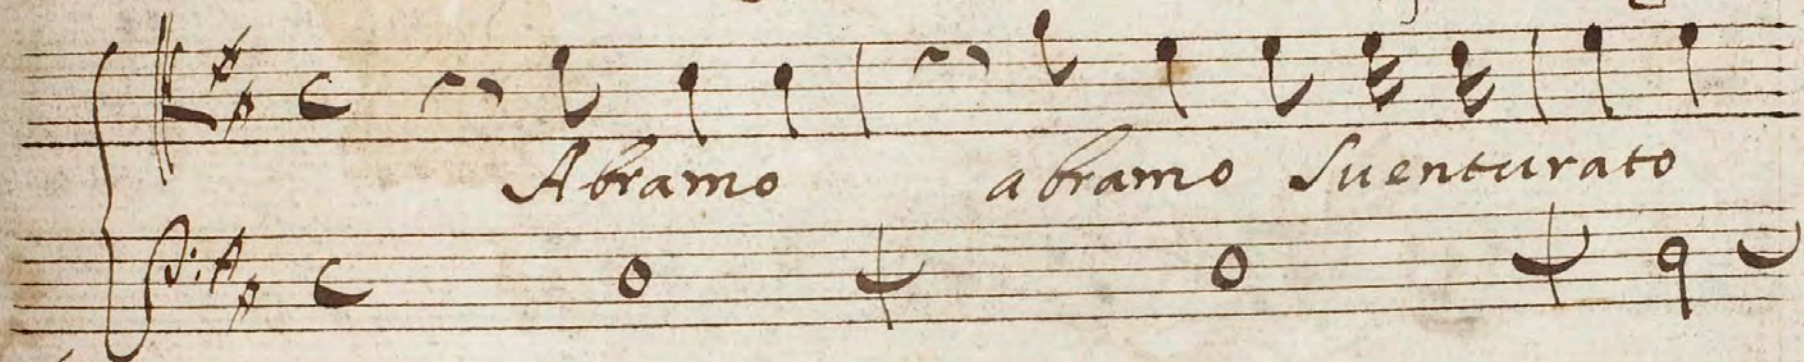 Abramo abramo suenturato